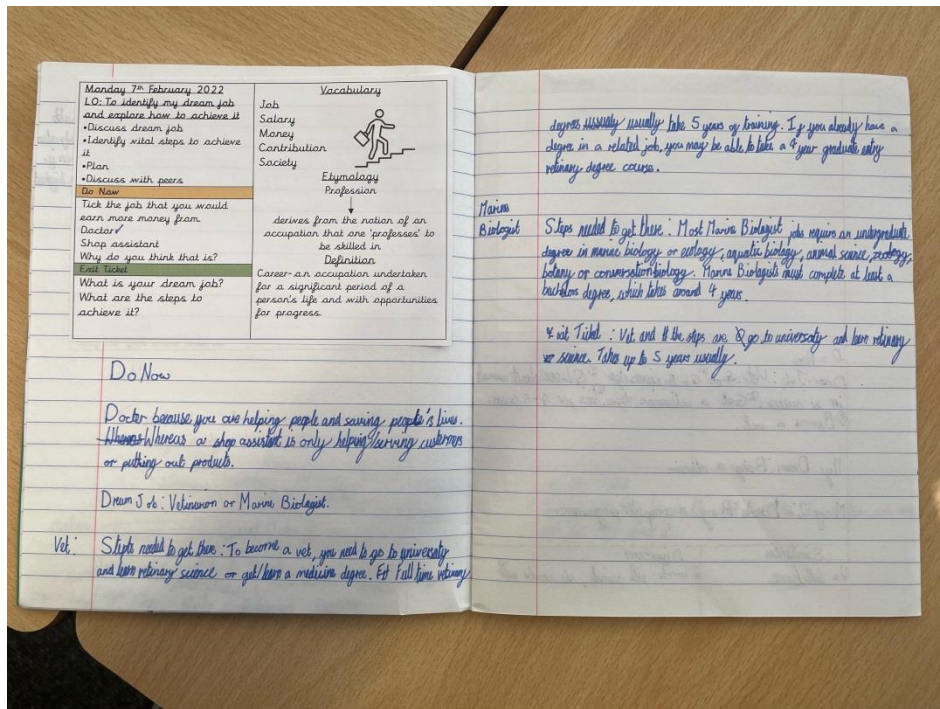 Monday 7th February 2022
LO: To identify my dream job
and explore how to achieve it
•Discuss dream job
•Identify vital steps to achieve
it
•Plan
•Discuss with peers
Do Now
Tick the job that you would
earn more money from
Doctor✓
Shop assistant
Why do you think that is?
Exit Ticket
What is your dream job?
What are the steps to
achieve it?
Vocabulary
Job
Salary
Money
Contribution
Society
Etymology
Profession
derives from the notion of an
occupation that one 'professes' to
be skilled in
Definition
Career-an occupation undertaken
for a significant period of a
person's life and with opportunities
for progress.
Do Now
Docter because you are helping people and saving people's lives.
Whereas a shop assistant is only helping/serving customers
or putting out products.
Dream Job: Vetinarian or Marine Biologist.
Vet:
Steps needed to get there: To become a vet, you need to go to university
and learn vetinary science or get/learn a medicine degree. Full time vetinary
degrees usually take 5 years of training. If you already have a
degree in a related job, you may be able to take a 4 year graduate entry
vetinary degree course.
Marine
Biologist
Steps needed to get there: Most Marine Biologist jobs require an undergraduate
degree in marine biology or ecology, aquatic biology, animal science, zoology,
botany or conversation biology. Marine Biologists must complete at least a
bachelors degree, which takes around 4 years.
Exit Ticket: Vet and the steps are go to university and learn vetinary
science. Takes up to 5 years usually.